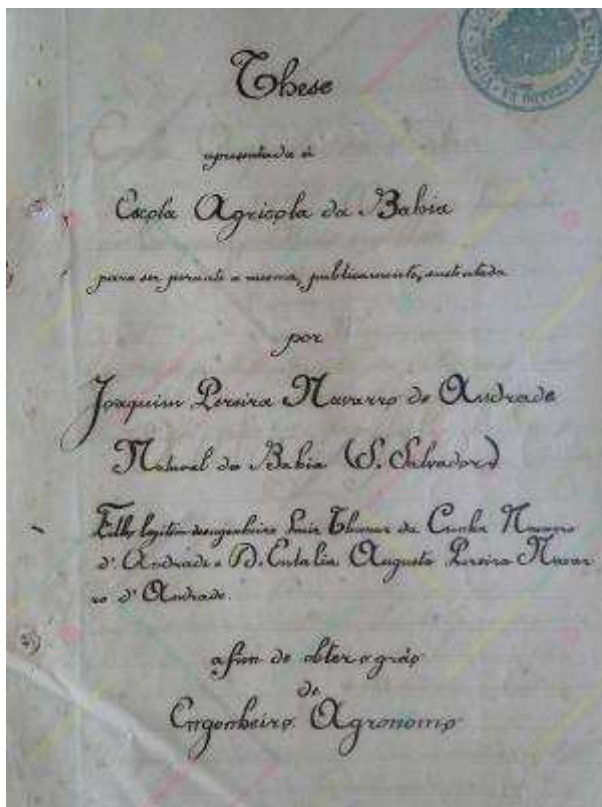 These
apresentada á
Escola Agricola da Bahia
para ser perante a mesma, publicamente, sustentada
por
Joaquim Pereira Navarro de Andrade
Natural da Bahia (S. Salvador)
Filho legitimo do engenheiro Luiz Thomaz da Cunha Navarro
d'Andrade e D. Eutalia Augusta Pereira Navar
ro d'Andrade.
afim de obter o gráo
de
Engenheiro Agronomo